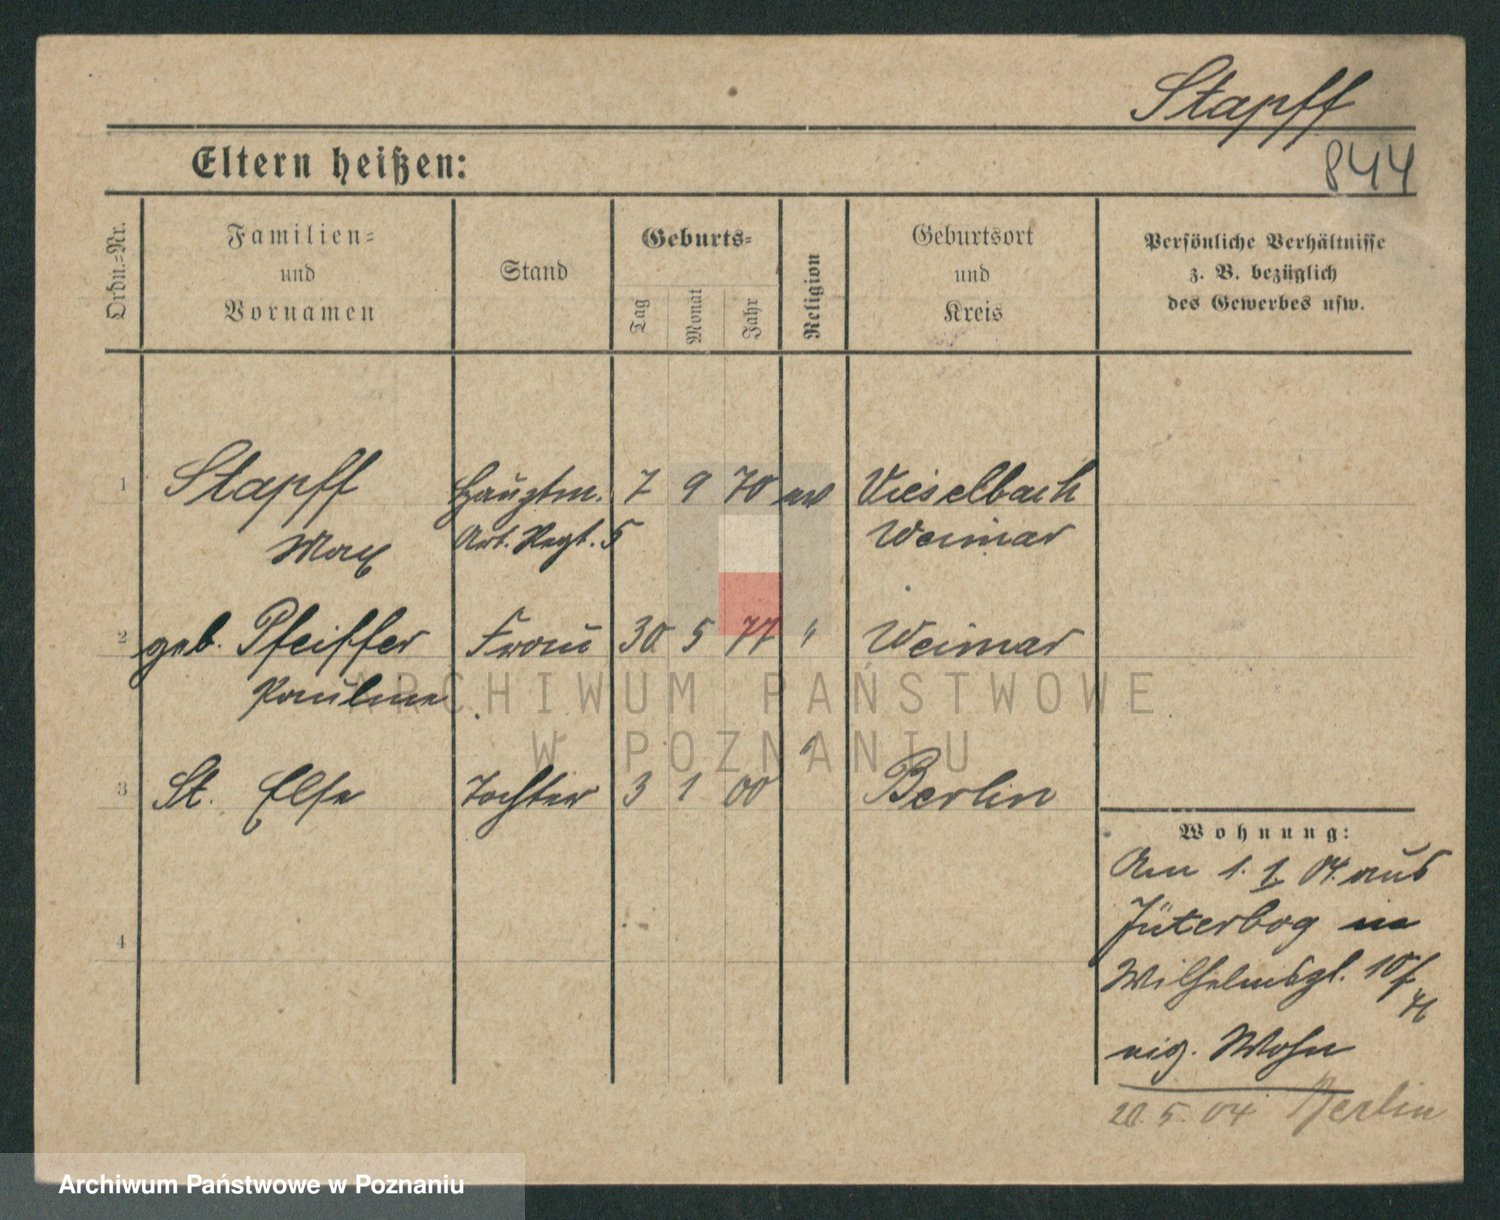 Stapff
844
Eltern heißen:
Ordn.=Nr.
Familien=
und
Vornamen
Stand
Geburts=
Tag
Monat
Jahr
Religion
Geburtsort
und
Kreis
Persönliche Verhältnisse
z. B. bezüglich
des Gewerbes usw.
1 Stapff Hauptm. 7 9 70 ev Vieselbach
Max Art. Regt. 5 Weimar
2 geb. Pfeiffer Frau 30 5 77 " Weimar
Pauline
3 St. Else Tochter 3 1 00 " Berlin
4
Wohnung:
Am 1. 1. 04 aus
Jüterbog in
Wilhelmspl. 10
eig. Wohn
20. 5. 04 Berlin
ARCHIWUM PAŃSTWOWE
W POZNANIU
Archiwum Państwowe w Poznaniu